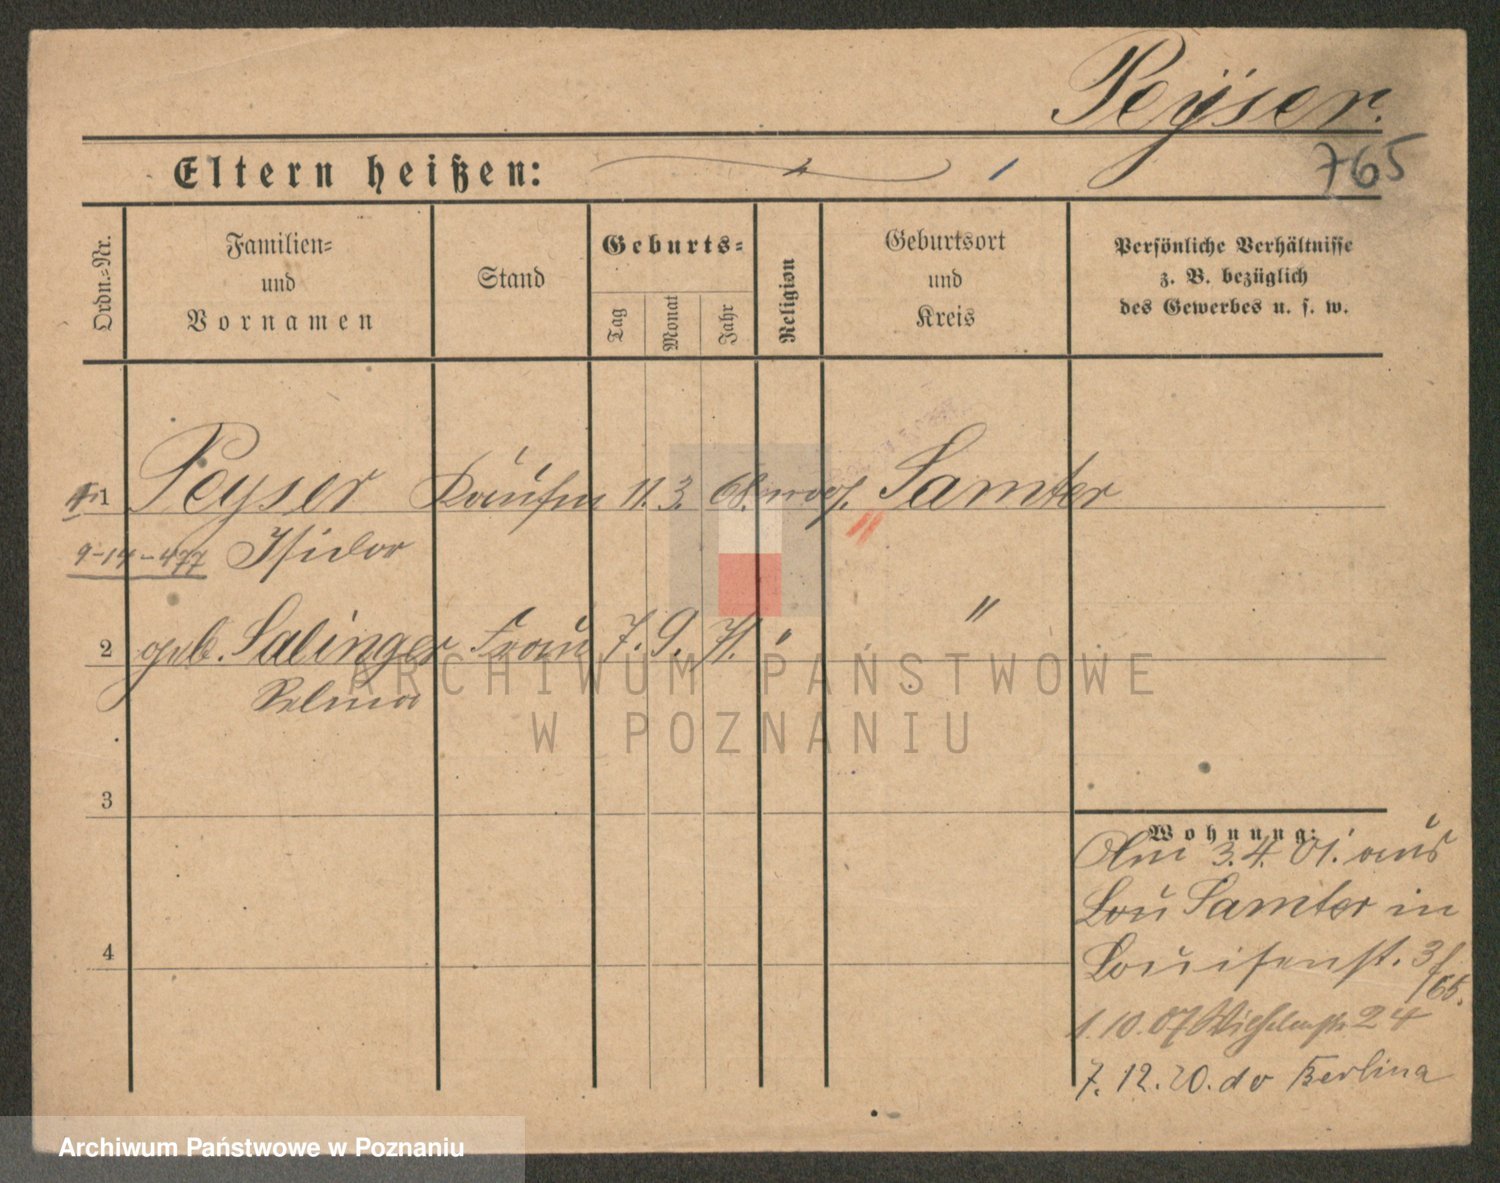 Peyser.
765
Eltern heißen:
Ordn.-Nr.
Familien-
und
Vornamen
Stand
Geburts-
Tag
Monat
Jahr
Religion
Geburtsort
und
Kreis
Persönliche Verhältnisse
z. B. bezüglich
des Gewerbes u. s. w.
1 Peyser Kaufm 11. 3. 68. mos. Samter
9-14-477 Isidor
2 geb. Salinger Frau 7. 9. 71. " "
Selma
ARCHIWUM PAŃSTWOWE
W POZNANIU
3
Wohnung:
Am 3.4.01. aus
Samter in
Louisenst. 3
/65.
4
1.10.07 24
7.12.20. do Berlina
Archiwum Państwowe w Poznaniu